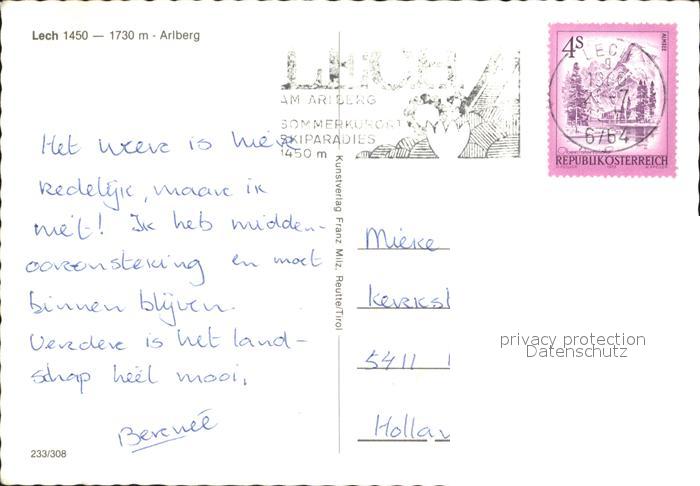 Lech 1450 — 1730 m - Arlberg
LECH
AM ARLBERG
SOMMERKURORT
SKIPARADIES
1450 m
4S
ALMSEE
LECH
6764
REPUBLIK ÖSTERREICH
Het weer is hier
redelijk, maar ik
niet! Ik heb midden-
oorontsteking en moet
binnen blijven.
Verder is het land-
schap heel mooi.
Berenéé
233/308
Kunstverlag Franz Milz, Reutte/Tirol
Mieke
Kerkst
5411
Hollan
privacy protection
Datenschutz